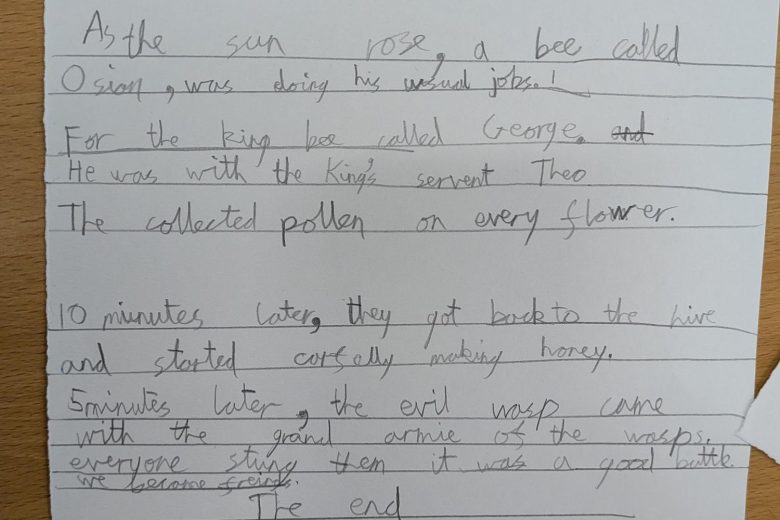 As the sun rose, a bee called
Osian, was doing his usual jobs.
For the king bee called George. and
He was with the King's servent Theo
The collected pollen on every flower.
10 miunutes later, they got back to the hive
and started making honey.
5minutes later, the evil wasp came
with the grand armie of the wasps.
everyone stung them it was a good battle
we become freinds.
The end